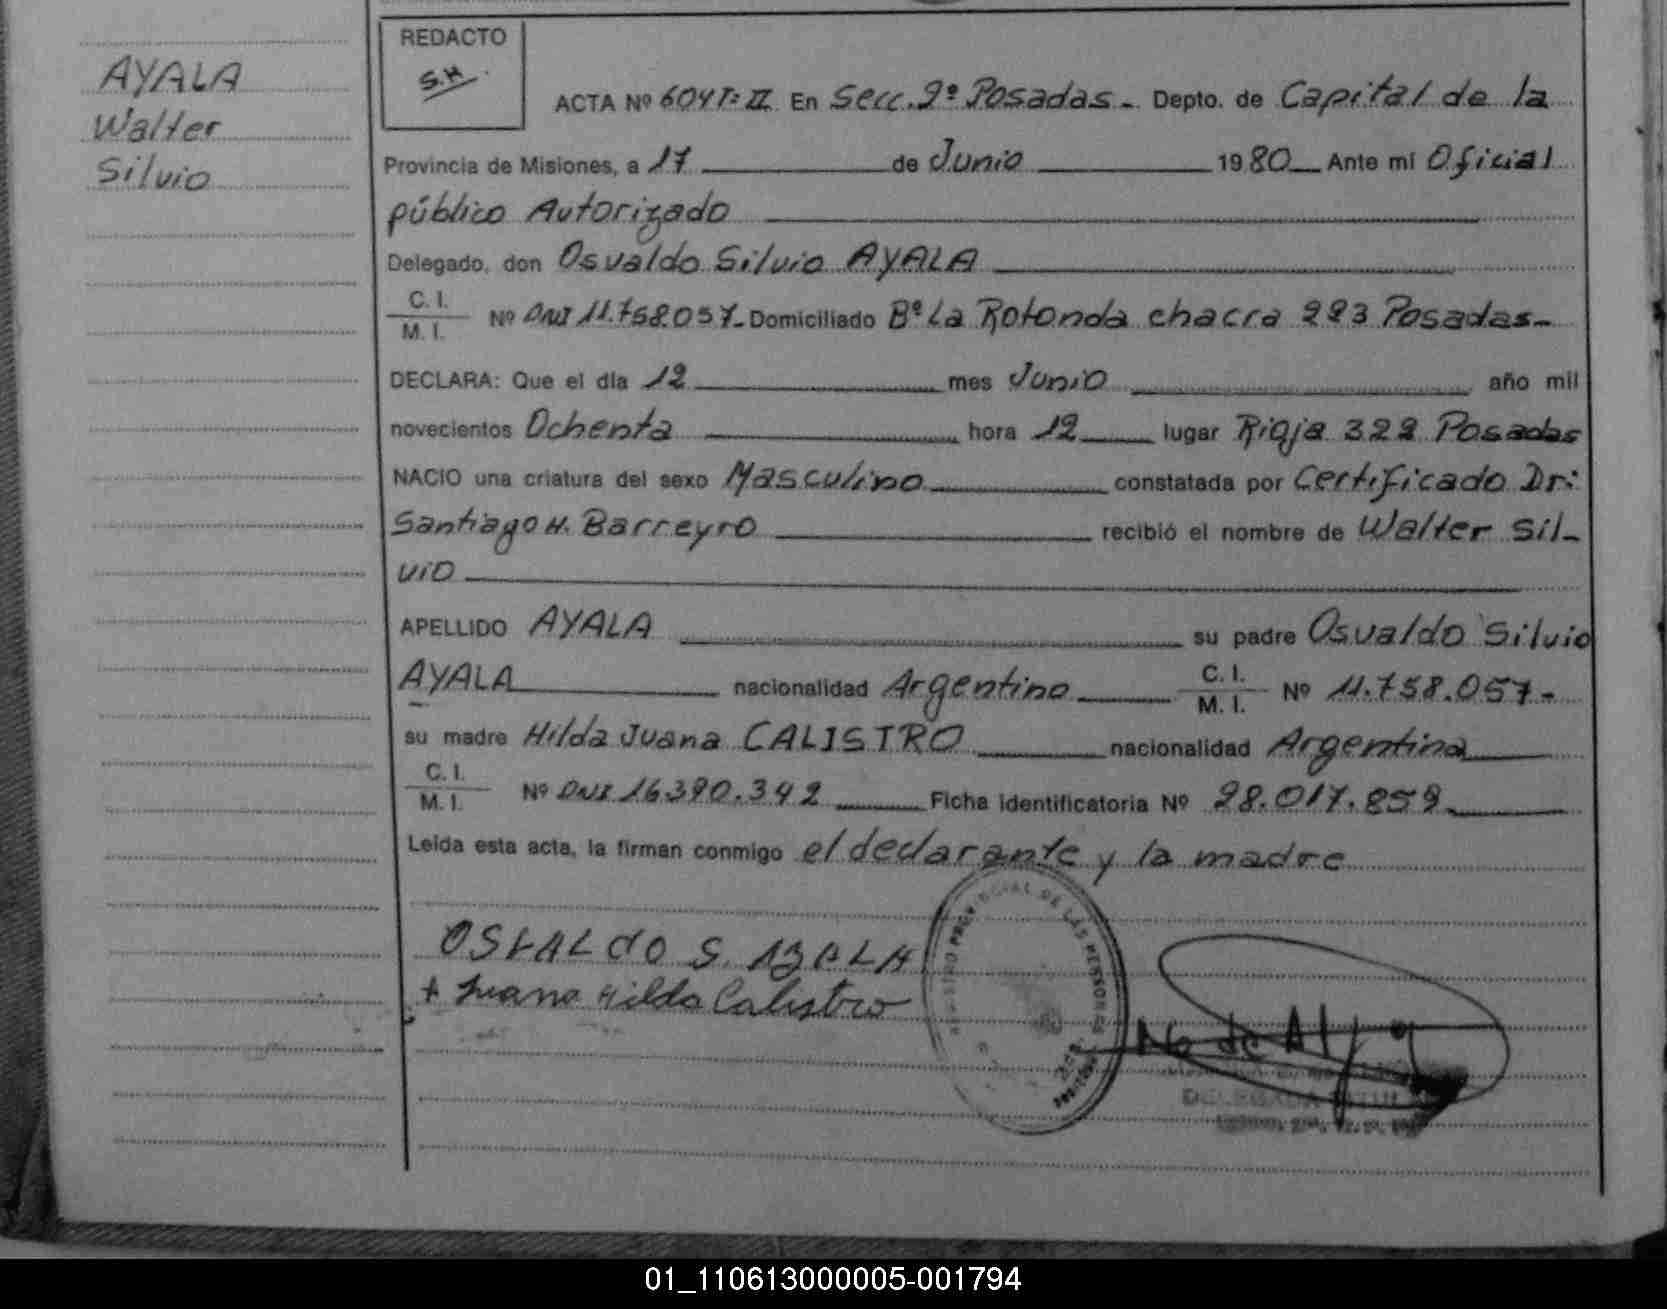 AYALA
Walter
Silvio
REDACTO
S.H.
ACTA Nº 604 T= II En Secc. 2º Posadas - Depto. de Capital de la
Provincia de Misiones, a 17 de Junio 1980 Ante mi Oficial
público Autorizado
Delegado, don Osvaldo Silvio AYALA
C. I.
M. I. Nº DNI 11.758.057- Domiciliado Bº La Rotonda chacra 223 Posadas-
DECLARA: Que el día 12 mes Junio año mil
novecientos Ochenta hora 12 lugar Rioja 322 Posadas
NACIO una criatura del sexo Masculino constatada por Certificado Dr:
Santiago H. Barreyro recibió el nombre de Walter Sil-
vio
APELLIDO AYALA su padre Osvaldo Silvio
AYALA nacionalidad Argentino C. I.
M. I. Nº 11.758.057-
su madre Hilda Juana CALISTRO nacionalidad Argentina
C. I.
M. I. Nº DNI 16.390.342 Ficha identificatoria Nº 28.017.859
Leída esta acta, la firman conmigo el declarante y la madre
OSVALDO S. AYALA
+ Juana Hilda Calistro
REGISTRO PROVINCIAL DE LAS PERSONAS
DELEGADA TITULAR
01_110613000005-001794